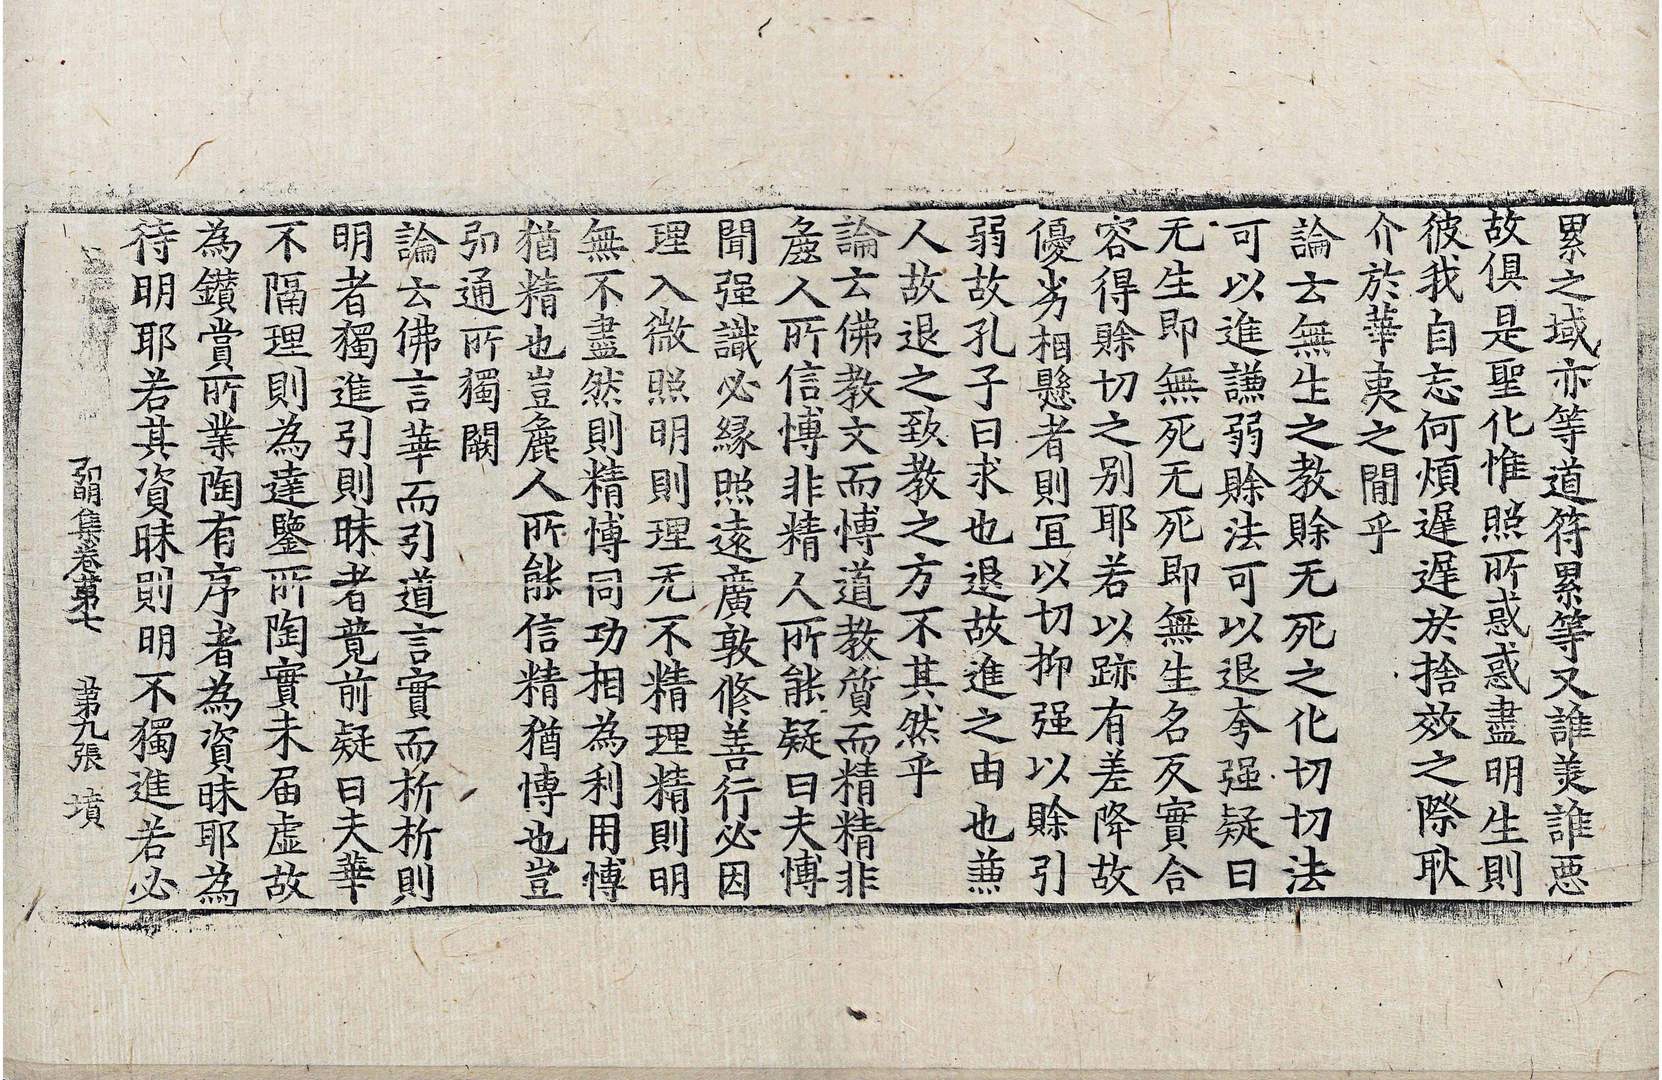 累之域亦等道符累等又誰羙誰惡
故俱是聖化惟照所惑惑盡明生則
彼我自忘何煩遲遲於捨效之際耿
介於華夷之閒乎
論云無生之教賖无死之化切切法
可以進謙弱賖法可以退夸强疑曰
无生即無死无死即無生名反實合
容得賖切之别耶若以跡有差降故
優劣相懸者則宜以切抑强以賖引
弱故孔子曰求也退故進之由也兼
人故退之致教之方不其然乎
論云佛教文而愽道教質而精精非
麁人所信愽非精人所能疑曰夫愽
聞强識必緣照遠廣敦修善行必因
理入微照明則理无不精理精則明
無不盡然則精愽同功相為利用愽
猶精也豈麁人所能信精猶愽也豈
弘通所獨闕
論云佛言華而引道言實而析析則
明者獨進引則昧者竟前疑曰夫華
不隔理則為達鑒所陶實未届虚故
為鑚賞所業陶有序者為資昧耶為
待明耶若其資昧則明不獨進若必
弘明集卷第七　第九張　墳